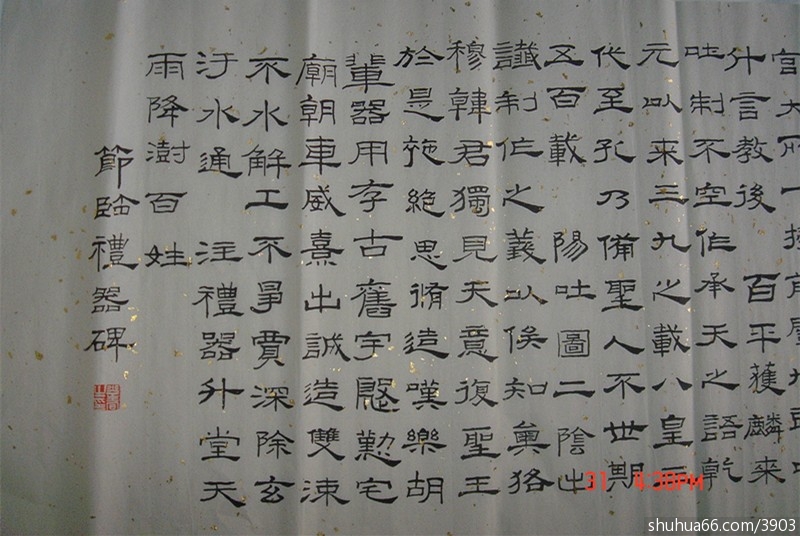 宮大一
什言教後 百平獲麟來
吐制不空作承天之語乾
元以來三九之載八皇三
代至孔乃備聖人不世期
五百載 陽吐圖二陰出
讖制作之義以俟知
穆韓君獨見天意復聖王
於是絕思脩造嘆樂胡
輩器用存古舊宇慇懃宅
廟朝車威熹出誠造雙涷
不水解工不爭賈深除玄
汙水通 注禮器升堂天
雨降澍百姓
節臨禮器碑
31 4:30PM
shuhua66.com/3903